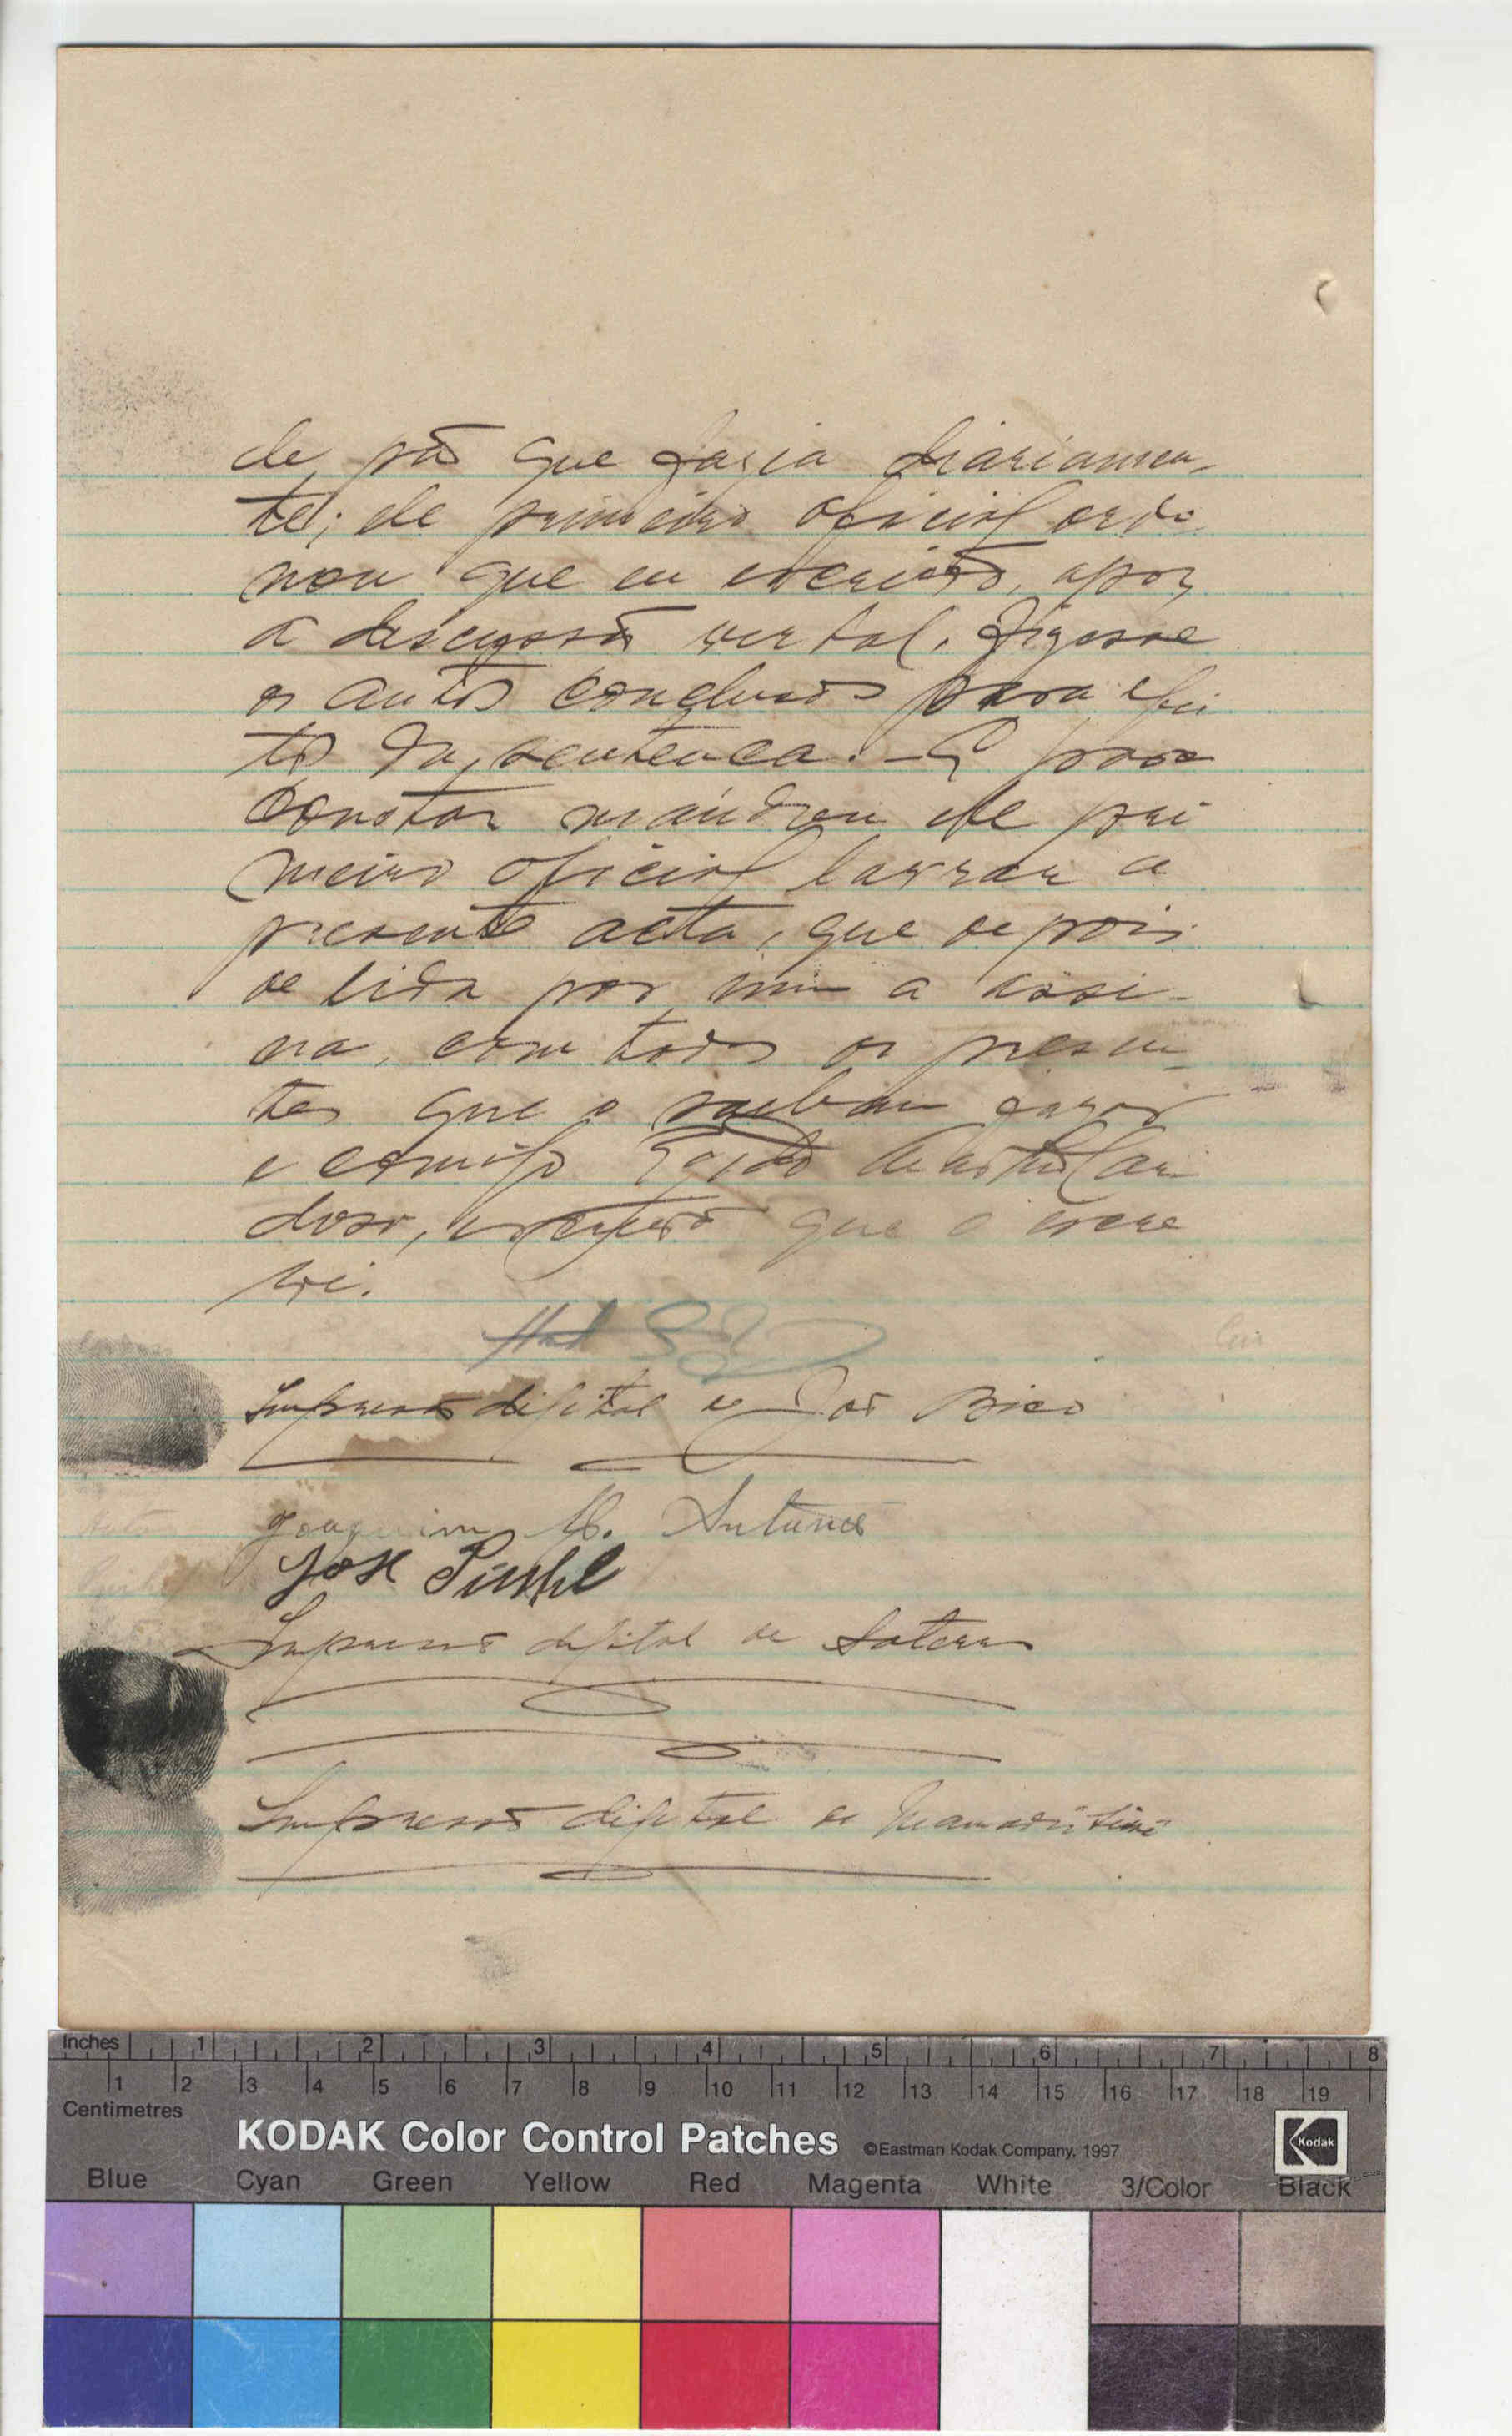 de pão que fazia diariamen-
te; ele primeiro oficial orde
nou que eu escrivão, apoz
a discussão verbal, fizesse
os autos conclusos para efei
to da sentença. - E para
constar mandou ele pri
meiro oficial lavrar a
presente acta, que depois
de lida por mim a assi-
na, com todos os presen-
tes que o saibam fazer
e comigo Car
doso, escrivão que o escre
vi.
Impressão digital de José Bico
Joaquim M. Antunes
José
Impressão digital de
Impressão digital de
Inches 1 2 3 4 5 6 7 8
1 2 3 4 5 6 7 8 9 10 11 12 13 14 15 16 17 18 19
Centimetres
KODAK Color Control Patches ©Eastman Kodak Company, 1997 Kodak
Blue Cyan Green Yellow Red Magenta White 3/Color Black